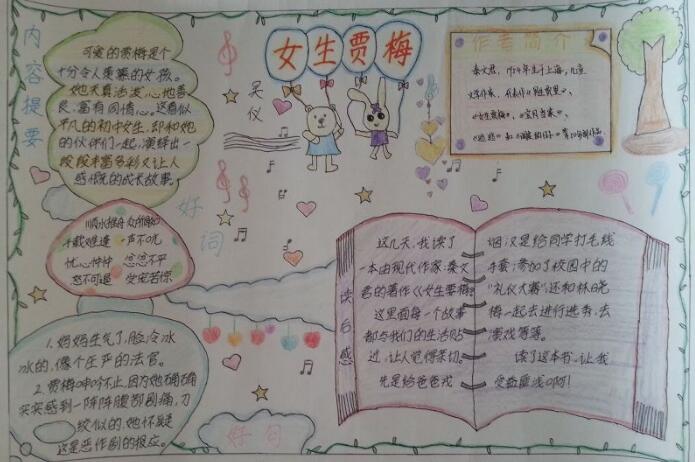 女生贾梅
吴仪
内容提要
可爱的贾梅是个
十分令人羡慕的女孩。
她天真活泼,心地善
良,富有同情心。这看似
平凡的初中女生,即和她
的伙伴们一起,演绎出一
段段丰富多彩又让人
感慨的成长故事。
作者简介
秦文君,1954年生于上海,儿童
文学作家,
《女生贾梅》,《宝贝当家》,
好词
顺水推舟 众所周知
千载难逢 一声不吭
忧心忡忡 忿忿不平
怒不可遏 受宠若惊
1.妈妈生气了,脸冷冰
冰的,像个庄严的法官。
2.贾梅呻吟不止,因为她确确
实实感到一阵阵腹部剧痛,刀
绞似的,她怀疑
这是恶作剧的报应。
好句
读后感
这几天,我读了
一本由现代作家:秦文
君的著作《女生贾梅》
这里面每一个故事
都与我们的生活贴
近,让人觉得亲切。
先是给爸爸戒
烟,又是给同学打毛线
手套;参加了校园中的
“礼仪大赛”还和林晓
梅一起去进行选秀,去
演戏等等。
读了这本书,让我
受益匪浅啊!